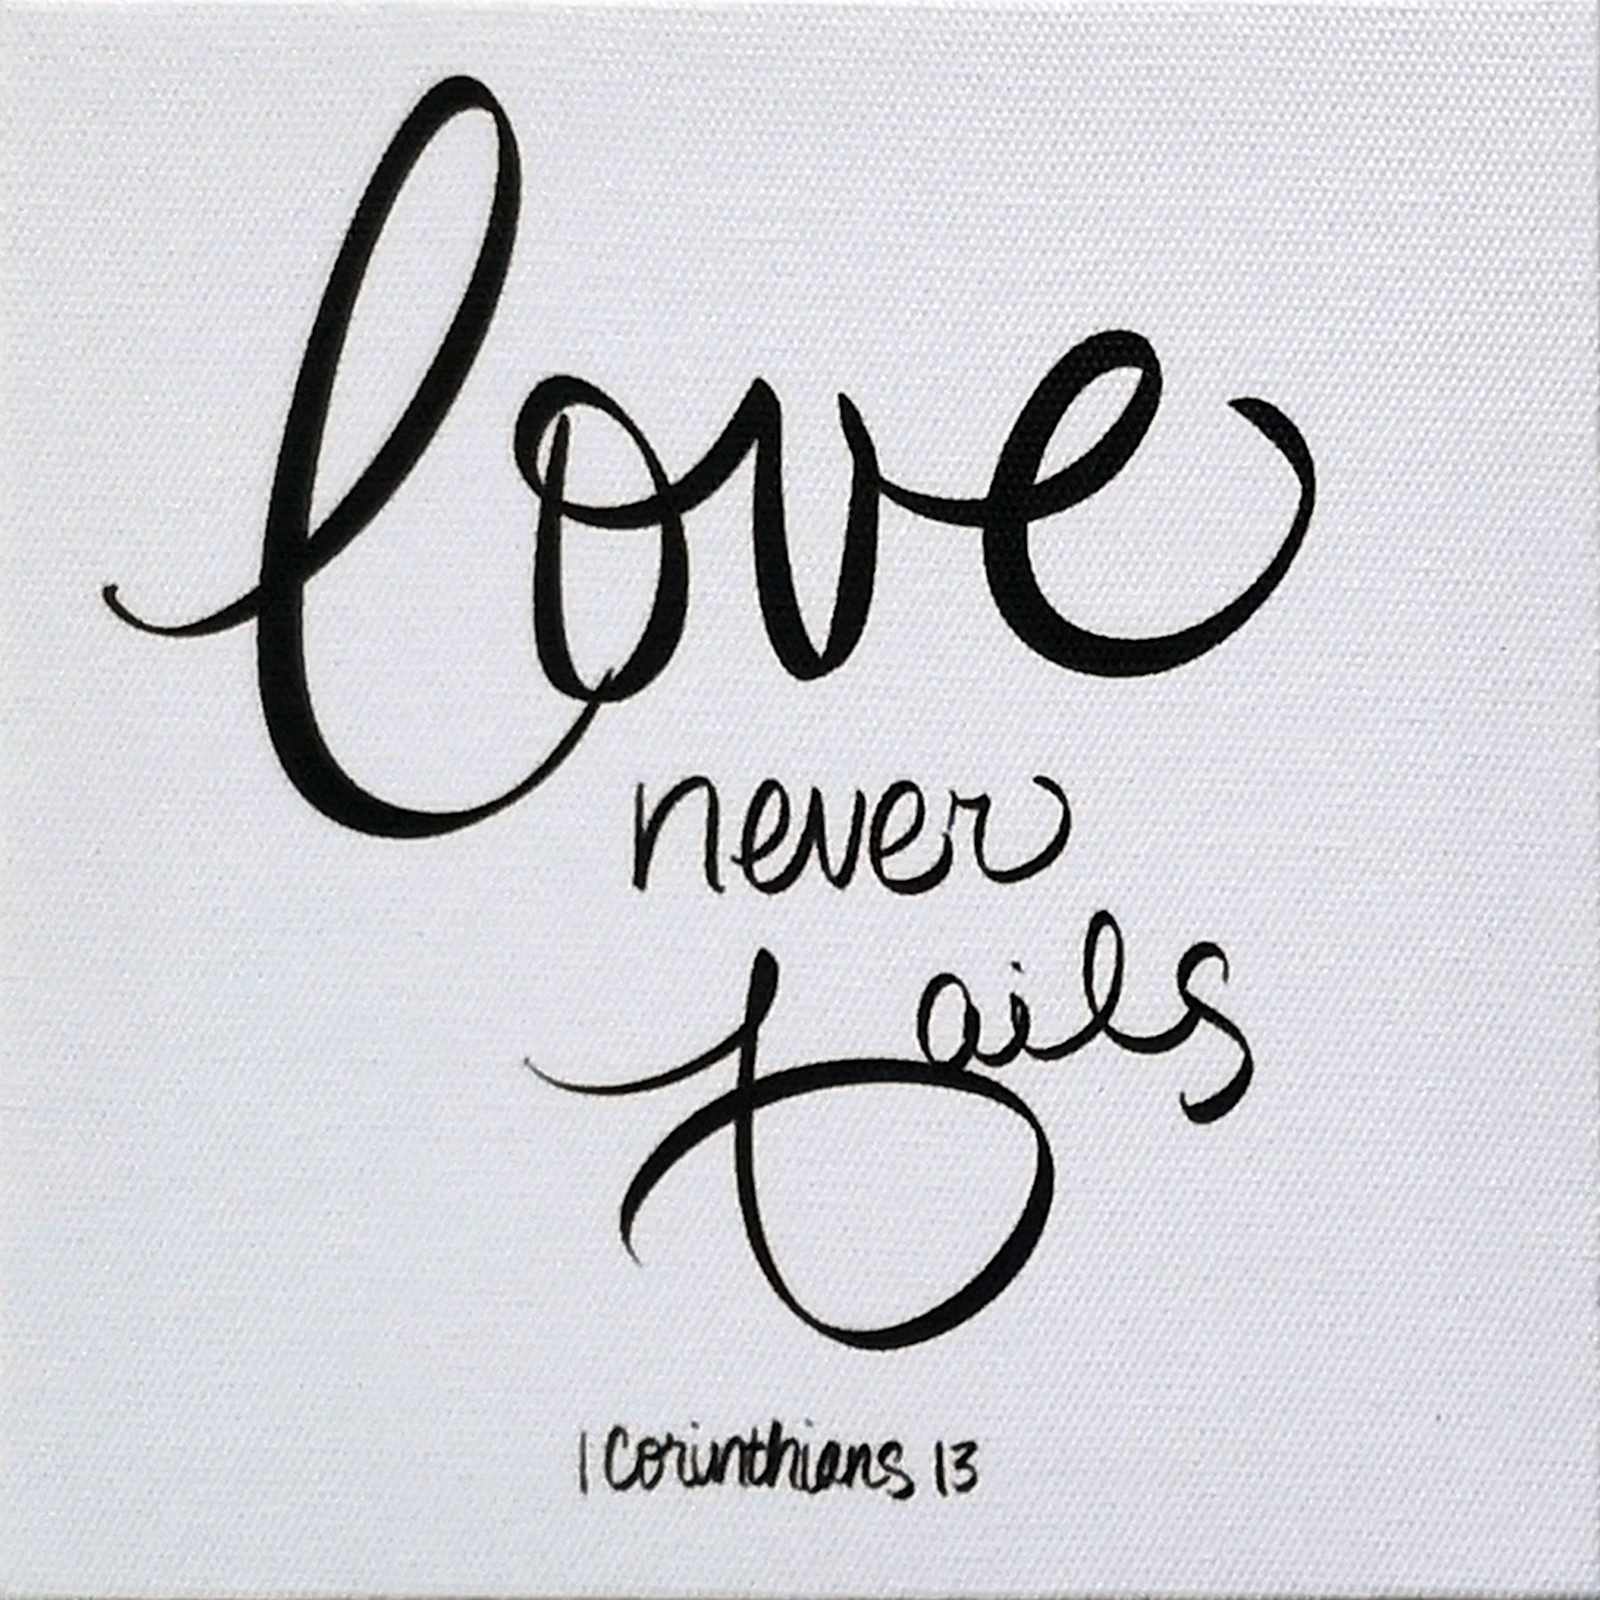 love
never
fails
1 Corinthians 13